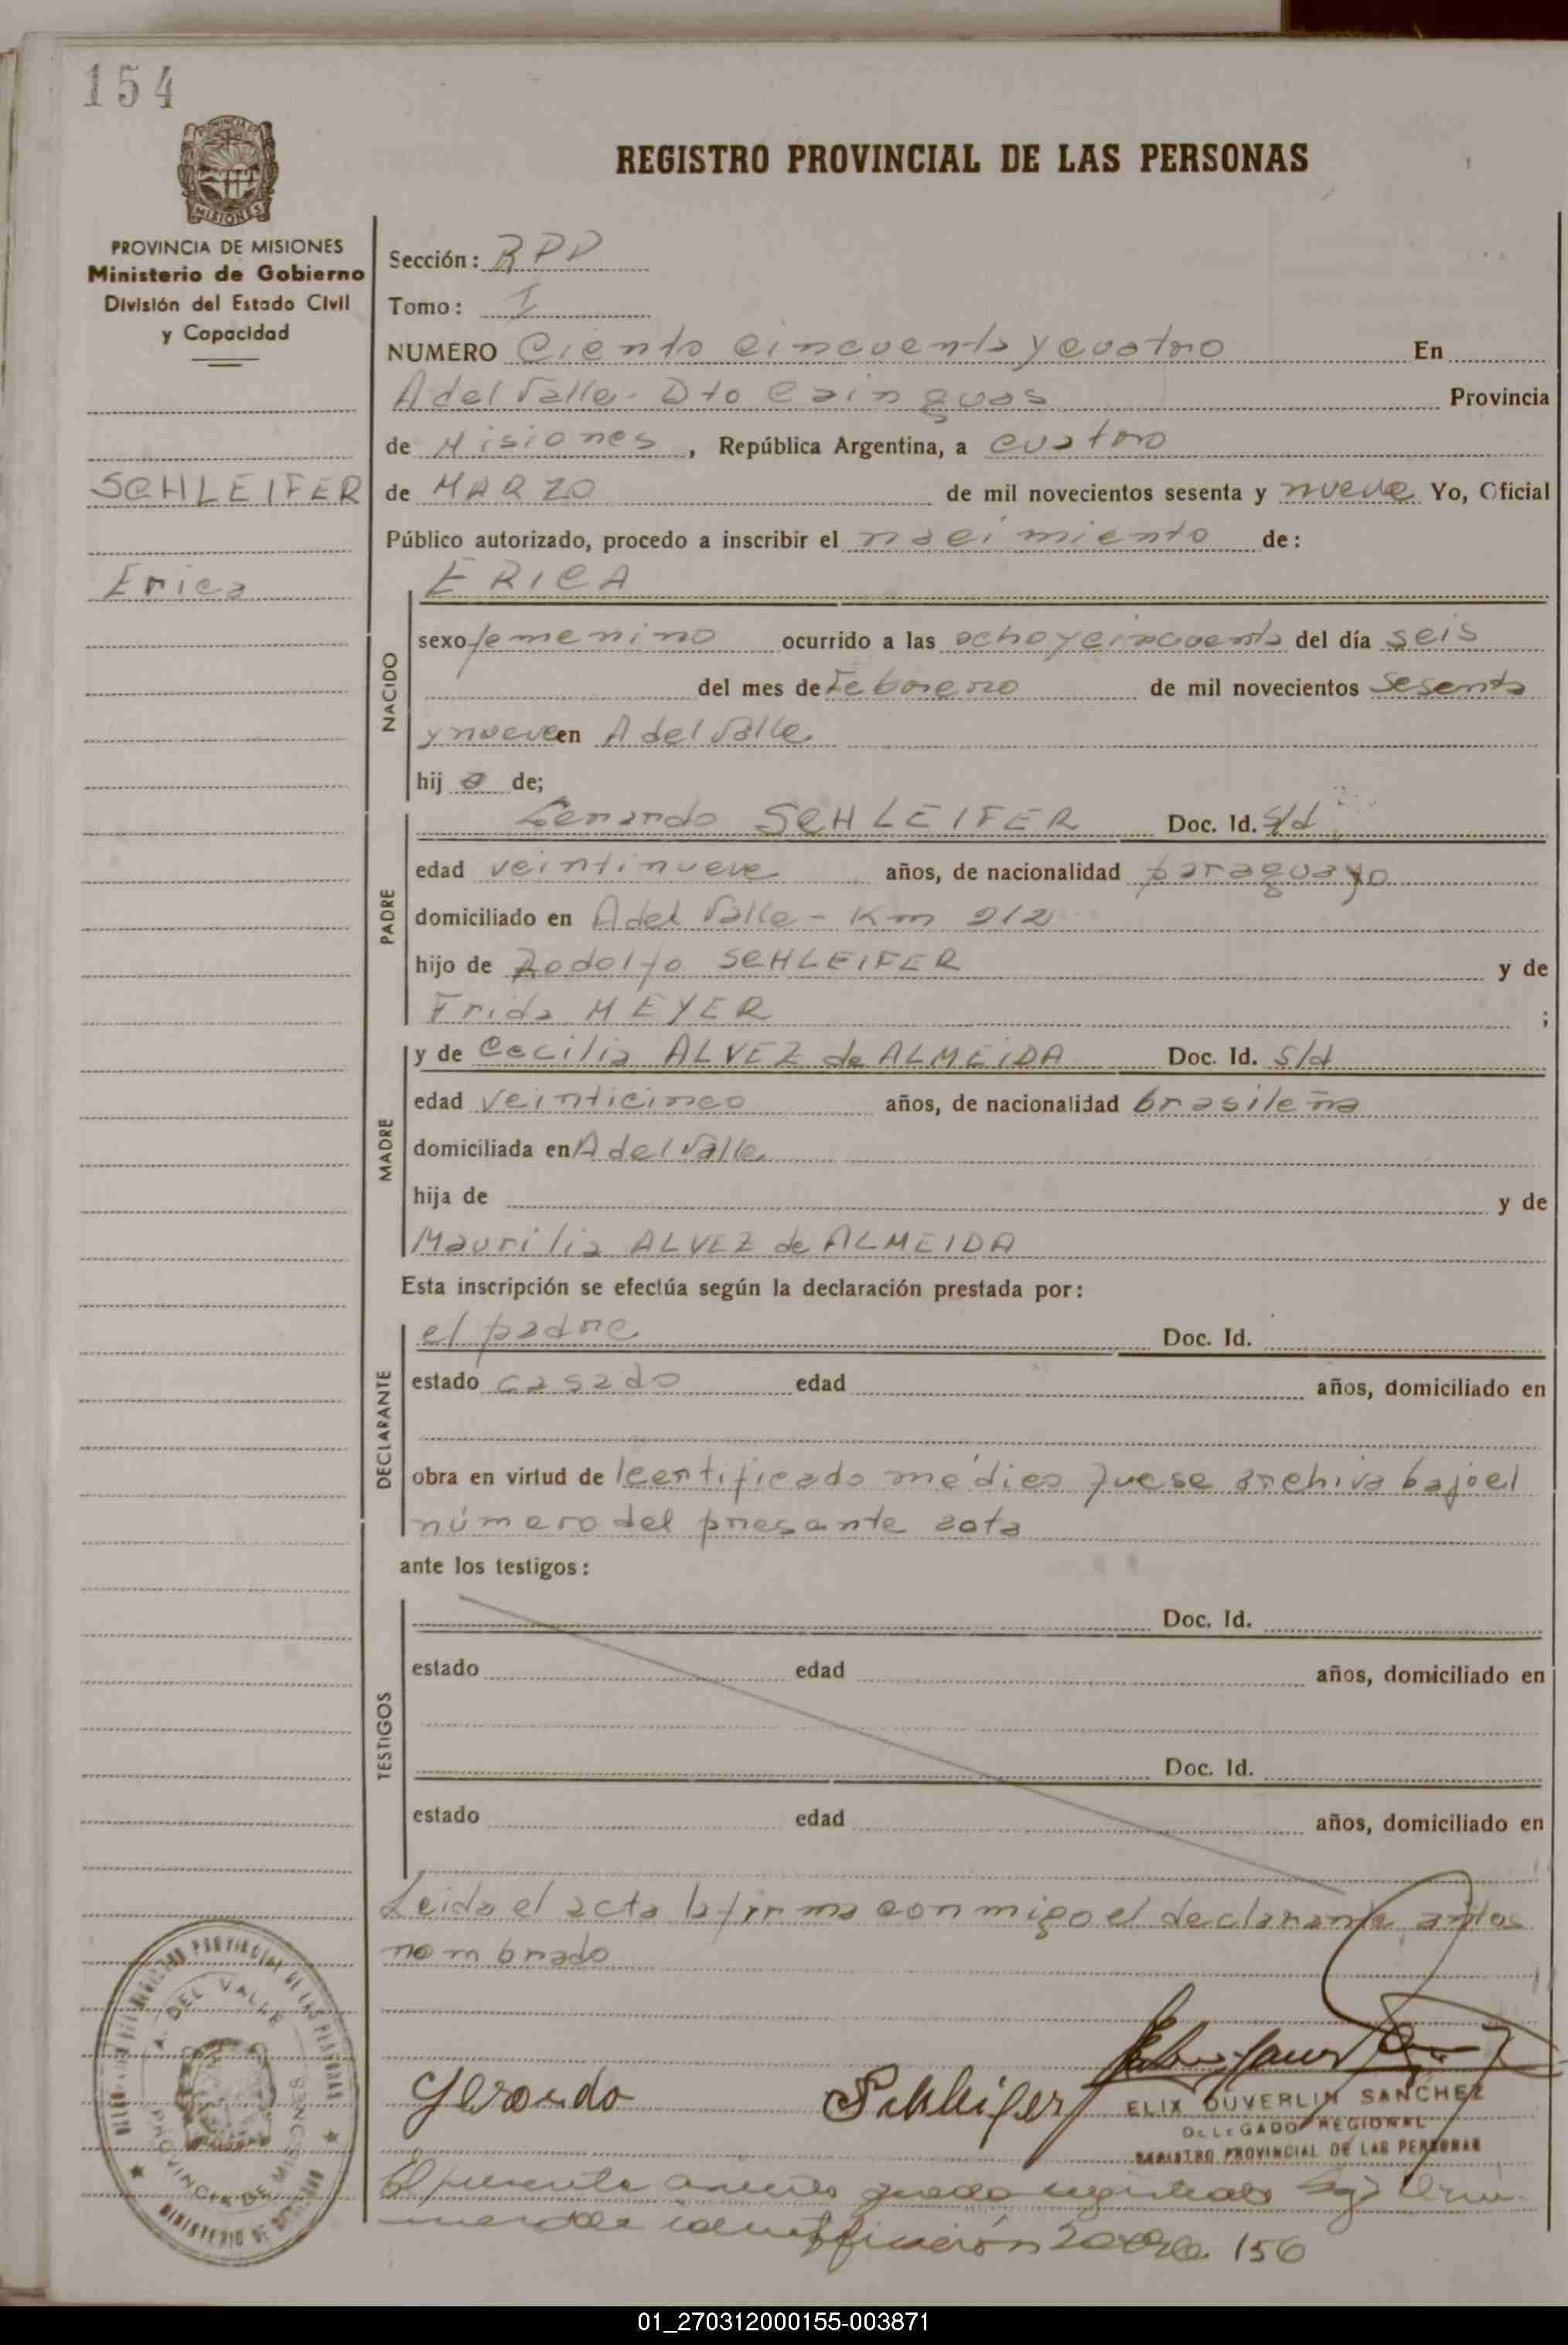 154
PROVINCIA DE MISIONES
Ministerio de Gobierno
División del Estado Civil
y Capacidad
SCHLEIFER
Erica
REGISTRO PROVINCIAL DE LAS PERSONAS
Sección: RPP
Tomo: I
NUMERO Ciento cincuenta y cuatro En
A del Valle - Dto Cainguas Provincia
de Misiones, República Argentina, a cuatro
de MARZO de mil novecientos sesenta y nueve Yo, Oficial
Público autorizado, procedo a inscribir el nacimiento de:
ERICA
NACIDO
sexo femenino ocurrido a las ocho y cincuenta del día seis
del mes de Febrero de mil novecientos sesenta
y nueve en A del Valle
hij a de;
PADRE
SCHLEIFER Doc. Id. s/d
edad veintinueve años, de nacionalidad paraguayo
domiciliado en A del Valle - Km 212
hijo de Rodolfo SCHLEIFER y de
Frida MEYER ;
MADRE
y de Cecilia ALVEZ de ALMEIDA Doc. Id. s/d
edad veinticinco años, de nacionalidad brasileña
domiciliada en A del Valle
hija de y de
Maurilia ALVEZ de ALMEIDA
Esta inscripción se efectúa según la declaración prestada por:
DECLARANTE
el padre Doc. Id.
estado casado edad años, domiciliado en
obra en virtud de certificado médico que se archiva bajo el
número del presente acta
ante los testigos:
TESTIGOS
Doc. Id.
estado edad años, domiciliado en
Doc. Id.
estado edad años, domiciliado en
Leida el acta la firma conmigo el declarante antes
nombrado
Gerardo Schleifer
ELIX DUVERLIN SANCHEZ
DELEGADO REGIONAL
REGISTRO PROVINCIAL DE LAS PERSONAS
REGISTRO PROVINCIAL DE LAS PERSONAS
A. DEL VALLE
PROVINCIA DE MISIONES
MINISTERIO DE GOBIERNO
El presente queda registrado
identificación 156
01_270312000155-003871